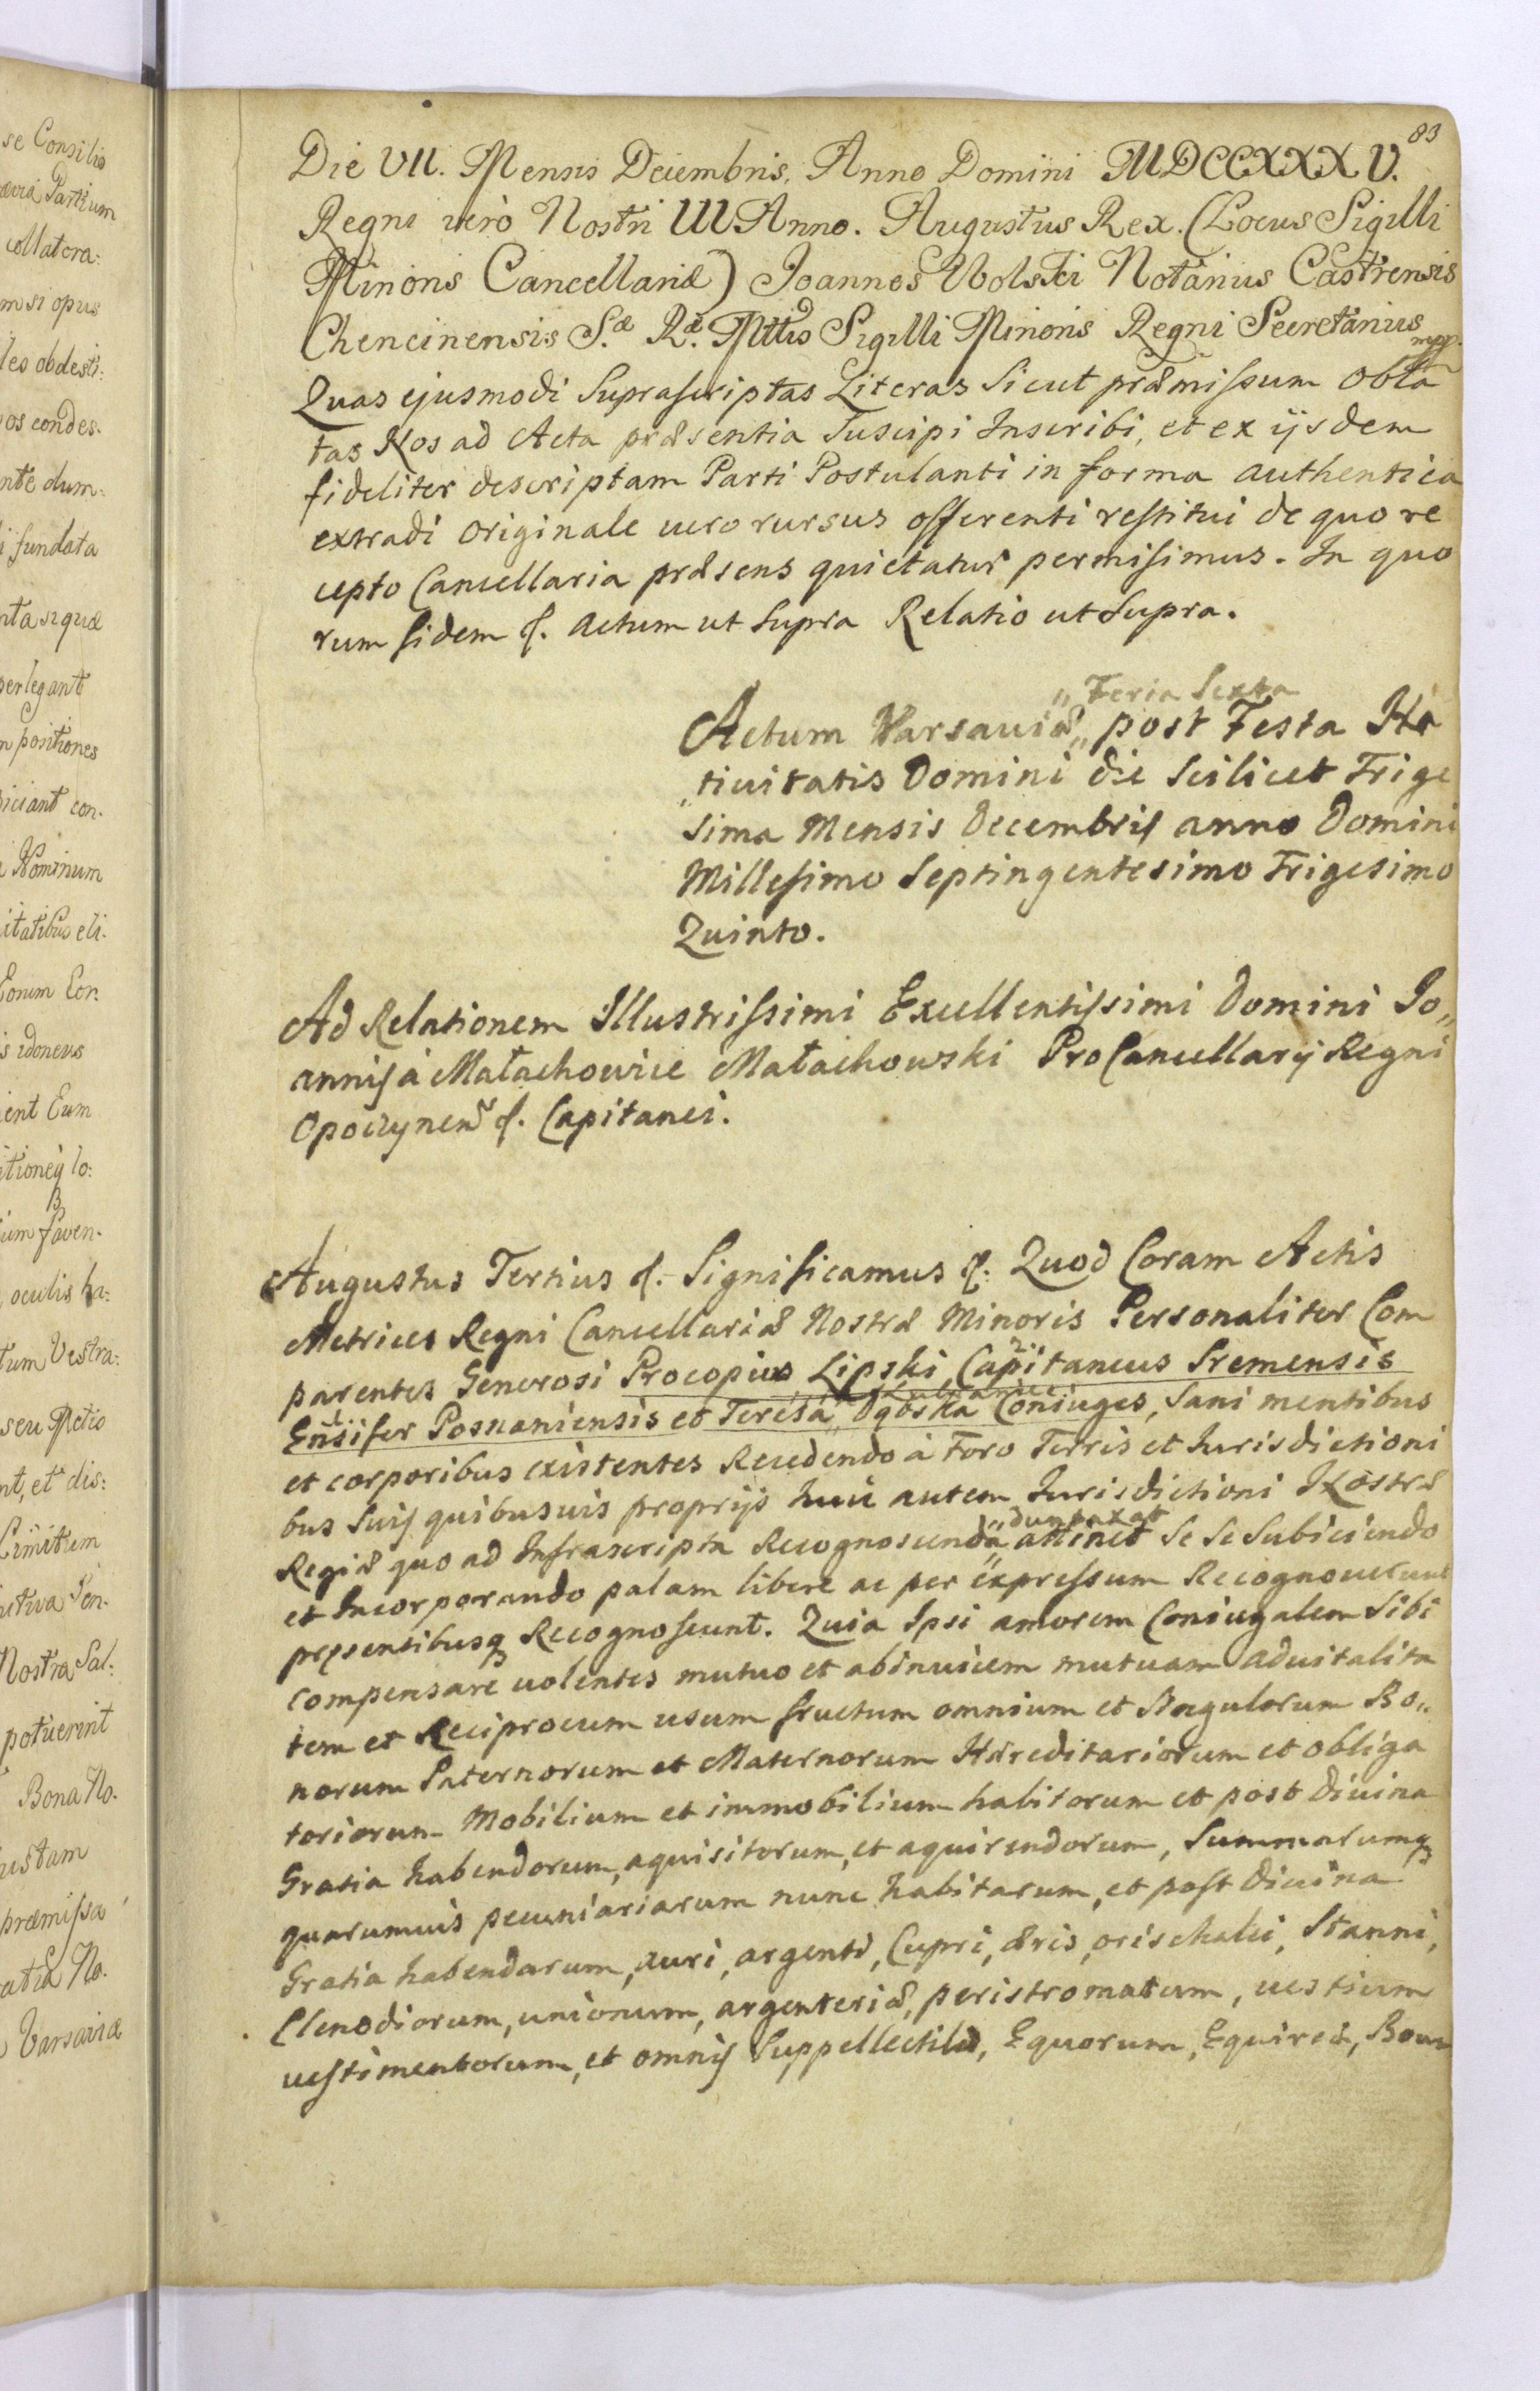 se Consilio
ævia Partium
collatera:
m si opus
les obdesti:
os condes.
nte dum:
i fundata
nta si quæ
perlegant
n positiones
iciant con.
Nominum
itatibus eli.
Eorum Cor:
s idoneus
ient Eum
itioneq lo:
um faven.
oculis ha:
tum Vestra:
seu Actio
nt, et dis:
Limitum
nitiva Sen.
Nostra Sal:
potuerint
Bona No.
ustam
præmissa
atia No.
Varsaviæ
83
Die VII. Mensis Decembris, Anno Domini MDCCXXXV.
Regni verò Nostri III Anno. Augustus Rex. (Locus Sigilli
Minoris Cancellariæ) Joannes Wolski Notarius Castrensis
Chencinensis S.æ R.æ Mttis Sigilli Minoris Regni Secretarius mpp.
Quas ejusmodi Suprascriptas Literas Sicut præmissum obla
tas Nos ad Acta præsentia Suscipi Inscribi, et ex ijsdem
fideliter descriptam Parti Postulanti in forma authentica
extradi originale uero rursus offerenti restitui de quo re
cepto Cancellaria præsens quietatur permisimus. In quo
rum fidem &. Actum ut Supra Relatio ut Supra.
„ Feria Sexta
Actum Varsauiæ „ post Festa Na
„tiuitatis Domini die Scilicet Trige
sima Mensis Decembris anno Domini
Millesimo Septingentesimo Trigesimo
Quinto.
Ad Relationem Illustrissimi Excellentissimi Domini Jo„
annis à Małachowice Małachowski ProCancellarij Regni
Opoczynen &. Capitanei.
Augustus Tertius &. Significamus &. Quod Coram Actis
Metrices Regni Cancellariæ Nostræ Minoris Personaliter Com
parentes Generosi Procopius Lipski Capitaneus Sremensis
Ensifer Posnaniensis et Teresa Ogorska Coniuges, Sani mentibus
et corporibus existentes Recedendo à Foro Terris et Jurisdictioni
bus Suis quibusuis proprijs huic autem Jurisdictioni Nostræ
duntaxat
Regiæ quo ad Infrascripta Recognoscenda „ attinet Se Se Subiciendo
et Incorporando palam libere ac per expressum Recognouerunt
præsentibusq Recognoscunt. Quia Ipsi amorem Coniugalem Sibi
compensare uolentes mutuo et abinuicem mutuam aduitalita
tem et Reciprocum usum fructum omnium et Singulorum Bo„
norum Paternorum et Maternorum Hæreditariorum et obliga
toriorum Mobilium et immobilium habitorum et post diuina
Gratia habendorum, aquisitorum, et aquirendorum, Summarumq
quarumuis pecuniariarum nunc habitarum, et post diuina
Gratia habendarum, auri, argenti, Cupri, æris, orischalci, Stanni,
Clenodiorum, unionum, argenteriæ, peristromatum, uestium
uestimentorum, et omnis Suppellectilis, Equorum, Equireæ, Boum